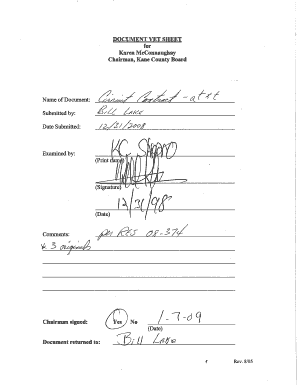 DOCUMENT VET SHEET
for
Karen McConnaughay
Chairman, Kane County Board
Name of Document: Circuit Contract - at&t
Submitted by: Bill Lake
Date Submitted: 12/31/2008
Examined by: K.C. Shepro
(Print name)
(Signature)
12/31/98
(Date)
Comments: per RES 08-374
* 3 originals
Chairman signed: Yes No 1-7-09
(Date)
Document returned to: Bill Lake
Rev. 8/05